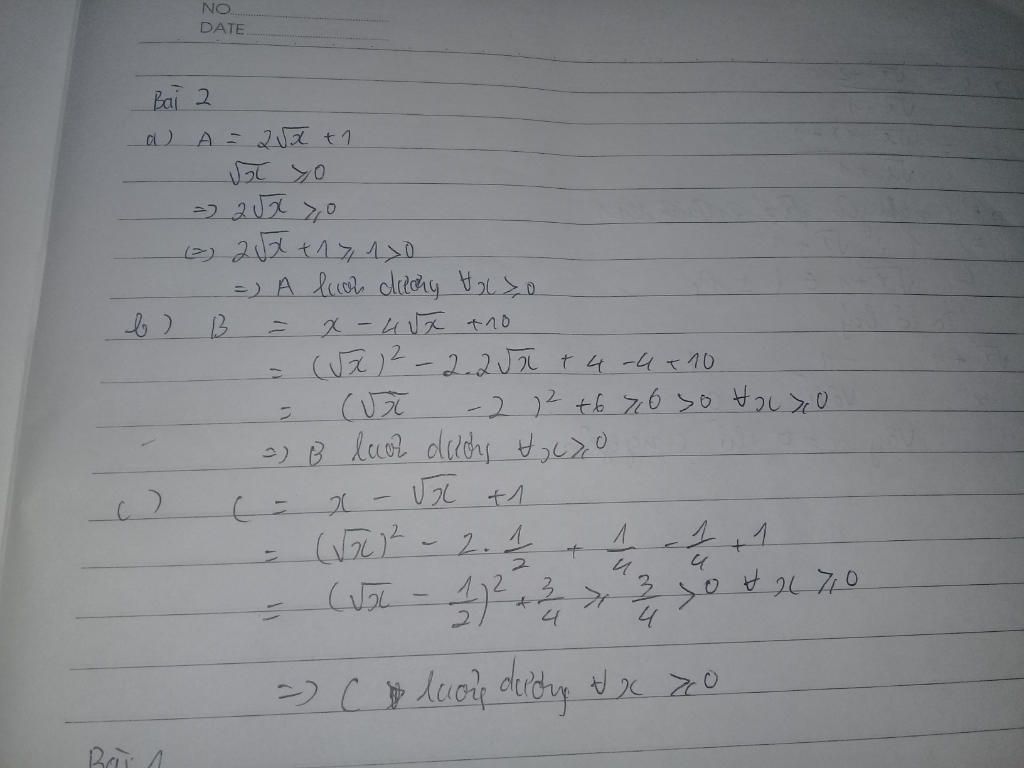 NO
DATE
Bài 2
a) A = 2√x + 1
√x ⩾ 0
=> 2√x ⩾ 0
(=) 2√x + 1 ⩾ 1 > 0
=> A luôn dương ∀x ⩾ 0
b) B = x - 4√x + 10
= (√x)² - 2.2√x + 4 - 4 + 10
= (√x - 2)² + 6 ⩾ 6 > 0 ∀x ⩾ 0
=> B luôn dương ∀x ⩾ 0
c) C = x - √x + 1
= (√x)² - 2. 1/2 + 1/4 - 1/4 + 1
= (√x - 1/2)² + 3/4 ⩾ 3/4 > 0 ∀ x ⩾ 0
=> C luôn dương ∀ x ⩾ 0
Bài 1